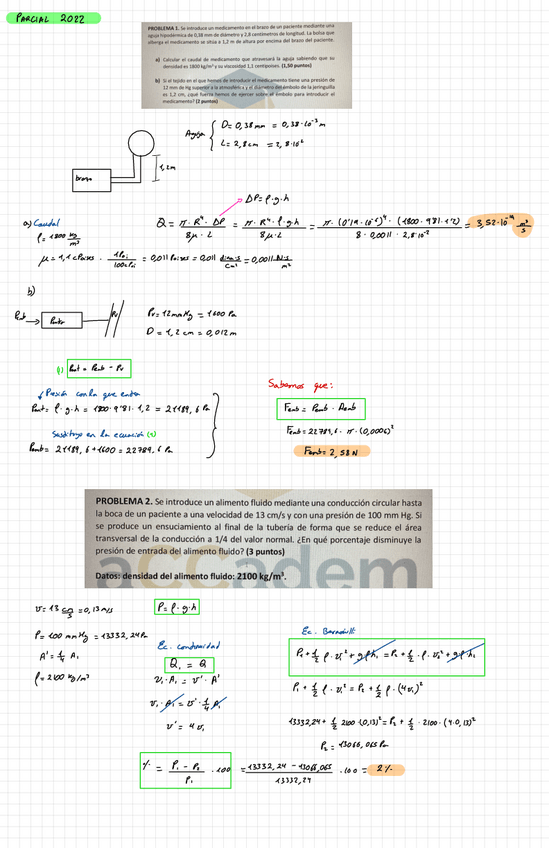 PARCIAL 2022
PROBLEMA 1. Se introduce un medicamento en el brazo de un paciente mediante una
aguja hipodérmica de 0,38 mm de diámetro y 2,8 centímetros de longitud. La bolsa que
alberga el medicamento se sitúa a 1,2 m de altura por encima del brazo del paciente.
a) Calcular el caudal de medicamento que atravesará la aguja sabiendo que su
densidad es 1800 kg/m³ y su viscosidad 1,1 centipoises. (1,50 puntos)
b) Si el tejido en el que hemos de introducir el medicamento tiene una presión de
12 mm de Hg superior a la atmosférica y el diámetro del émbolo de la jeringuilla
es 1,2 cm, ¿qué fuerza hemos de ejercer sobre el émbolo para introducir el
medicamento? (2 puntos)
Aguja { D = 0,38 mm = 0,38·10⁻³ m
L = 2,8 cm = 2,8·10²
1,2m
brazo
ΔP = ρ·g·h
a) Caudal
Q = π·R⁴·ΔP / 8μ·L = π·R⁴·ρ·g·h / 8μ·L = π·(0'19·10⁻³)⁴·(1800·9'81·1'2) / 8·0,0011·2,8·10⁻² = 3,52·10⁻⁷ m³/s
ρ = 1800 kg/m³
μ = 1,1 cPoises · 1Poi / 100cPoi = 0,011 Poises = 0,011 dinas·s / cm² = 0,0011 N·s / m²
b)
Pv = 12mmHg = 1600 Pa
D = 1,2 cm = 0,012m
Sabemos que:
Presión con la que entra
Pent = ρ·g·h = 1800·9'81·1,2 = 21189,6 Pa
Femb = Pemb · Aemb
Sustituyo en la ecuación (1)
Femb = 22789,6 · π · (0,006)²
Pemb = 21189,6 + 1600 = 22789,6 Pa
Femb = 2,58 N
PROBLEMA 2. Se introduce un alimento fluido mediante una conducción circular hasta
la boca de un paciente a una velocidad de 13 cm/s y con una presión de 100 mm Hg. Si
se produce un ensuciamiento al final de la tubería de forma que se reduce el área
transversal de la conducción a 1/4 del valor normal. ¿En qué porcentaje disminuye la
presión de entrada del alimento fluido? (3 puntos)
Datos: densidad del alimento fluido: 2100 kg/m³.
v = 13 cm/s = 0,13 m/s
P = ρ·g·h
P = 100 mmHg = 13332,24 Pa
A' = 1/4 A₁
ρ = 2100 kg/m³
Ec. continuidad
Q₁ = Q
v₁·A₁ = v'·A'
v₁·A₁ = v'·1/4 A₁
v' = 4v₁
Ec. Bernoulli:
P₁ + 1/2 ρ·v₁² + gρh₁ = P₂ + 1/2·ρ·v₂² + gρh₂
P₁ + 1/2 ρ·v₁² = P₂ + 1/2 ρ·(4v₁)²
13332,24 + 1/2 2100·(0,13)² = P₂ + 1/2·2100·(4·0,13)²
P₂ = 13066,065 Pa
% = P₁ - P₂ / P₁ · 100 = 13332,24 - 13066,065 / 13332,24 · 100 = 2%